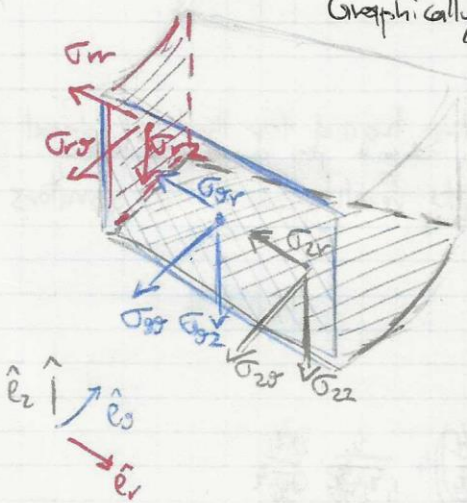 Graphically
σrr
σrϑ σrz
σϑr
σzr
σϑϑ σϑz
σzϑ σzz
êz êϑ
êr